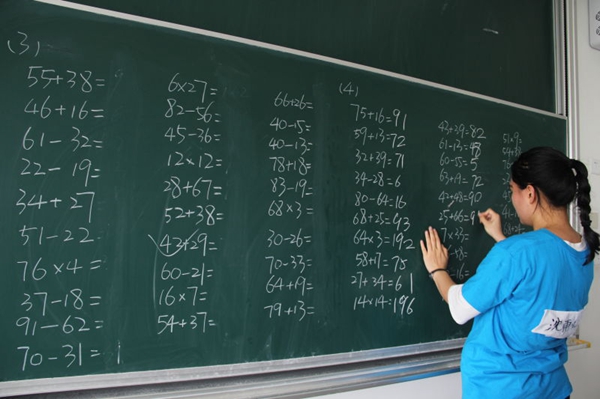 (3)
55+38=
46+16=
61-32=
22-19=
34+27
51-22=
76×4=
37-18=
91-62=
70-31=1
6×27=
82-56=
45-36=
12×12=
28+67=
52+38=
43+29=
60-21=
16×7=
54+37=
66+26=
40-15=
40-13=
78+18=
83-19=
68×3=
30-26=
70-33=
64+19=
79+13=
(4)
75+16=91
59+13=72
32+39=71
34-28=6
80-64=16
68+25=93
64×3=192
58+17=75
27+34=61
14×14=196
43+39=82
60-55=5
42+48=90